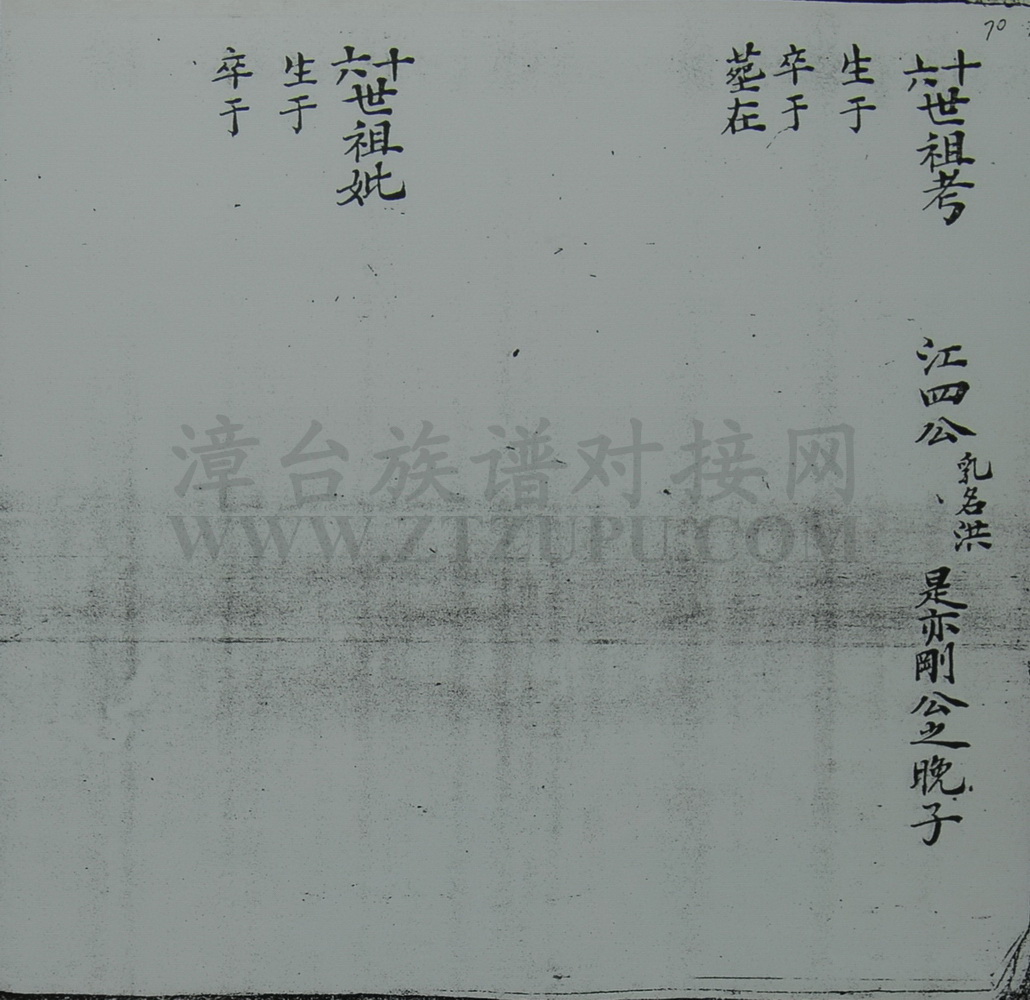 70
十六世祖考 江四公 乳名洪 是亦剛公之晚子
生于
卒于
茔在
十六世祖妣
生于
卒于
漳台族谱对接网
WWW.ZTZUPU.COM